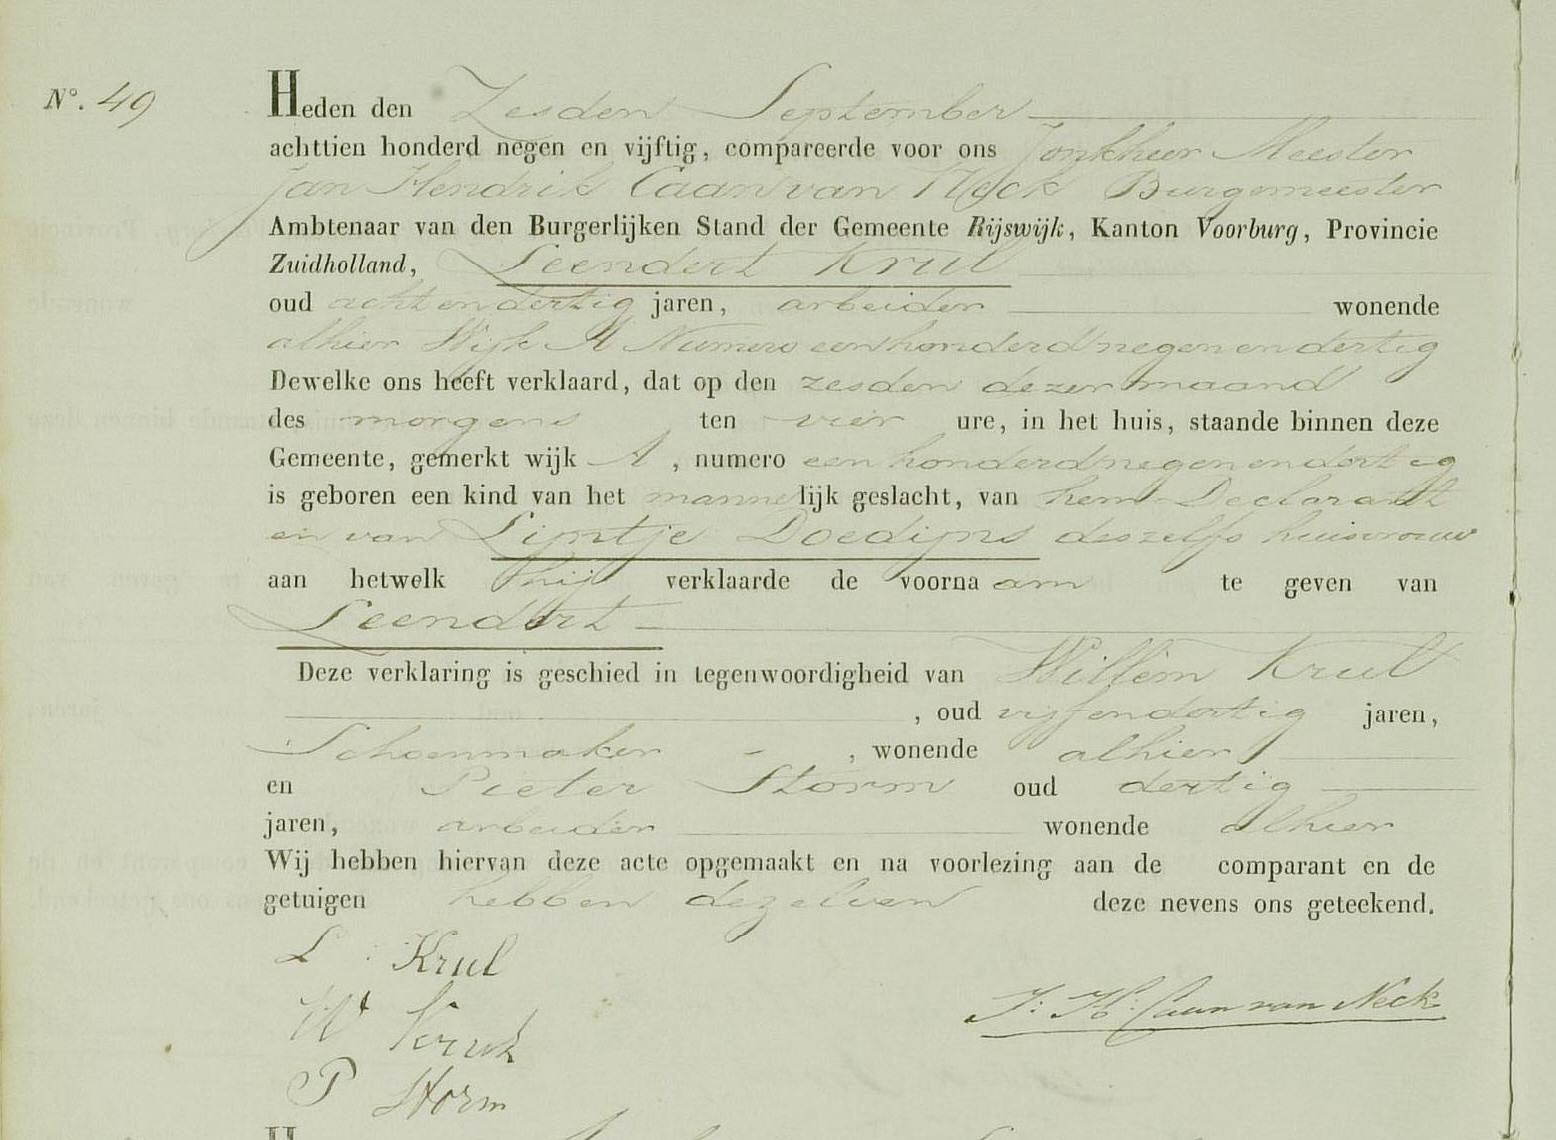 N°. 49
Heden den Zesden September
achttien honderd negen en vijftig, compareerde voor ons Jonkheer Meester
Jan Hendrik Caan van Neck Burgemeester
Ambtenaar van den Burgerlijken Stand der Gemeente Rijswijk, Kanton Voorburg, Provincie
Zuidholland, Leendert Krul
oud achtendertig jaren, arbeider wonende
alhier Wijk A Numero eenhonderdnegenendertig
Dewelke ons heeft verklaard, dat op den zesden dezer maand
des morgens ten vier ure, in het huis, staande binnen deze
Gemeente, gemerkt wijk A, numero eenhonderdnegenendertig
is geboren een kind van het mannelijk geslacht, van hem Declarant
en van Lijntje Doedijns deszelfs huisvrouw
aan hetwelk hij verklaarde de voornaam te geven van
Leendert
Deze verklaring is geschied in tegenwoordigheid van Willem Krul
, oud vijfendertig jaren,
Schoenmaker - , wonende alhier
en Pieter Storm oud dertig
jaren, arbeider wonende alhier
Wij hebben hiervan deze acte opgemaakt en na voorlezing aan de comparant en de
getuigen hebben dezelven deze nevens ons geteekend.
L : Krul
J: H: Caan van Neck
Wm Krul
P Storm